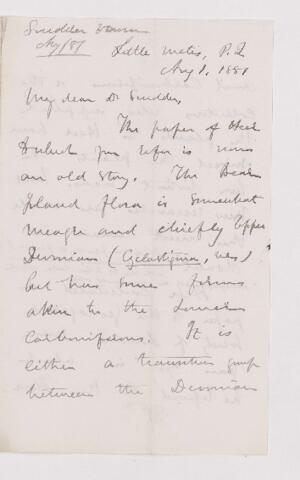 Scudder
Aug/81
Little Metis, P.Q
Aug 1, 1881
My dear Dr Scudder,
The paper of Heer
to which you refer is now
an old story. The Bear
Island flora is somewhat
meagre and chiefly Upper
Devonian (Cyclostigma, &c)
but has some forms
akin to the Lower
Carboniferous. It is
either a transition group
between the Devonian